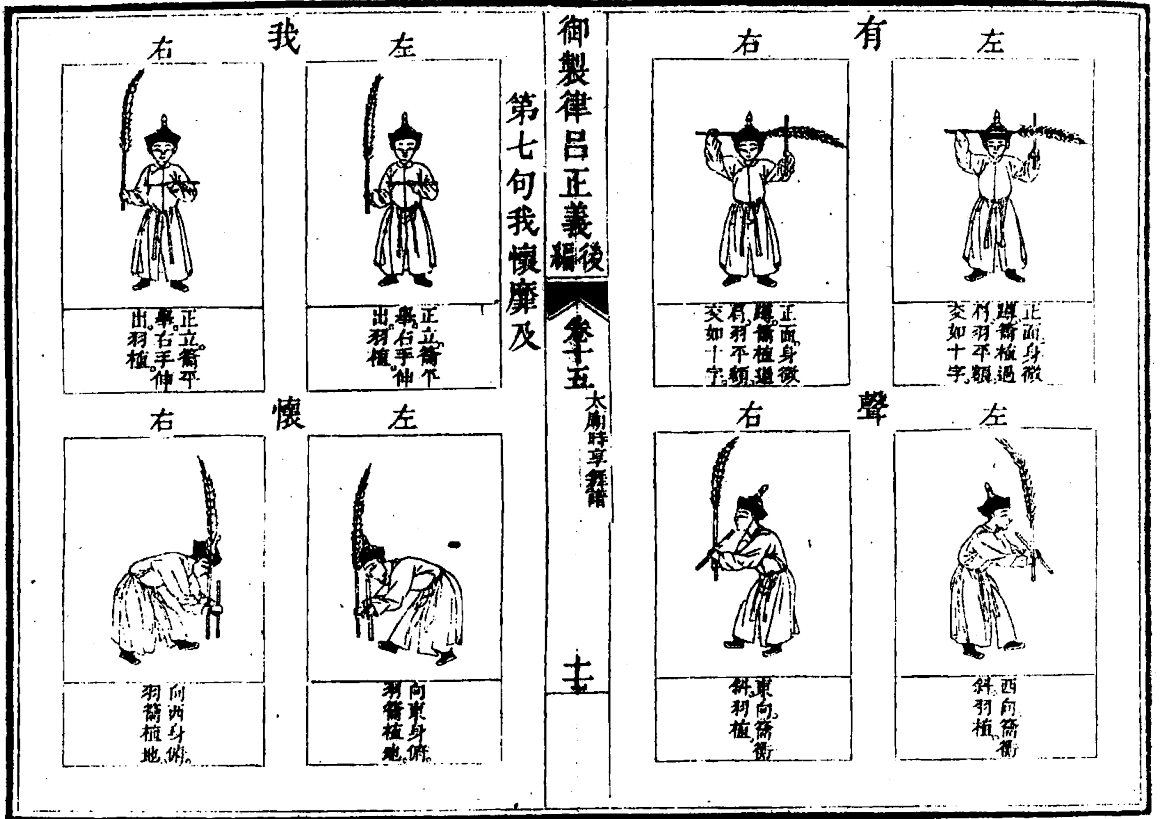 有
左
正面身微
蹲籥植過
肩羽平額
交如十字
右
正面身微
蹲籥植過
肩羽平額
交如十字
聲
左
西向籥衝
斜羽植
右
東向籥衝
斜羽植
御製律呂正義後編
卷十五
太廟時享舞譜
第七句我懷靡及
我
左
正立籥平
舉右手伸
出羽植
右
正立籥平
舉右手伸
出羽植
懷
左
向東身俯
羽籥植地
右
向西身俯
羽籥植地